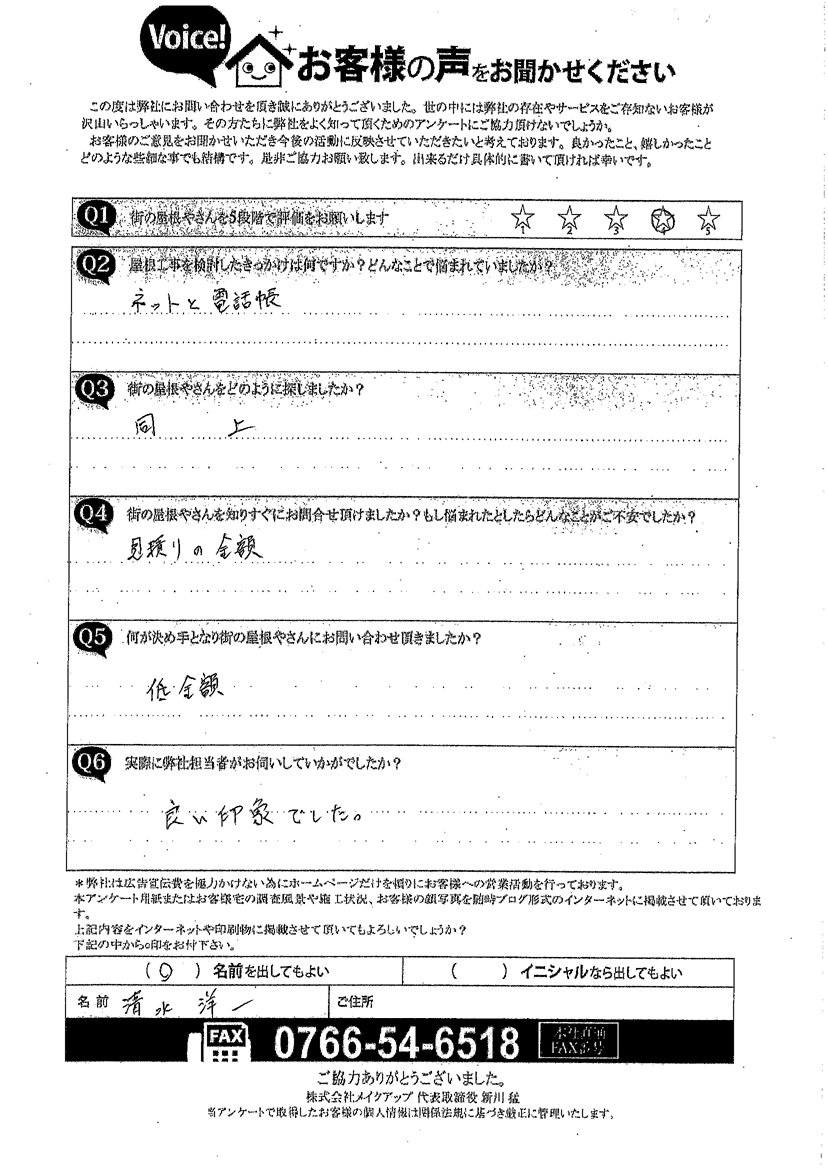 Voice!
お客様の声をお聞かせください
この度は弊社にお問い合わせを頂き誠にありがとうございました。世の中には弊社の存在やサービスをご存知ないお客様が
沢山いらっしゃいます。その方たちに弊社をよく知って頂くためのアンケートにご協力頂けないでしょうか。
お客様のご意見をお聞かせいただき今後の活動に反映させていただきたいと考えております。良かったこと、嬉しかったこと
どのような些細な事でも結構です。是非ご協力お願い致します。出来るだけ具体的に書いて頂ければ幸いです。
Q1 街の屋根やさんを5段階で評価をお願いします 1 2 3 4 5
Q2 屋根工事を検討したきっかけは何ですか?どんなことで悩まれていましたか?
ネットと電話帳
Q3 街の屋根やさんをどのように探しましたか?
同 上
Q4 街の屋根やさんを知りすぐにお問合せ頂けましたか?もし悩まれたとしたらどんなことがご不安でしたか?
見積りの金額
Q5 何が決め手となり街の屋根やさんにお問い合わせ頂きましたか?
低金額
Q6 実際に弊社担当者がお伺いしていかがでしたか?
良い印象でした。
*弊社は広告宣伝費を極力かけない為にホームページだけを頼りにお客様への営業活動を行っております。
本アンケート用紙またはお客様宅の調査風景や施工状況、お客様の顔写真を随時ブログ形式のインターネットに掲載させて頂いておりま
す。
上記内容をインターネットや印刷物に掲載させて頂いてもよろしいでしょうか?
下記の中から○印をお付下さい。
(○)名前を出してもよい ( )イニシャルなら出してもよい
名前 清水 洋一 ご住所
FAX 0766-54-6518 本社直通
FAX番号
ご協力ありがとうございました。
株式会社メイクアップ 代表取締役 新川 猛
当アンケートで取得したお客様の個人情報は関係法規に基づき厳正に管理いたします。